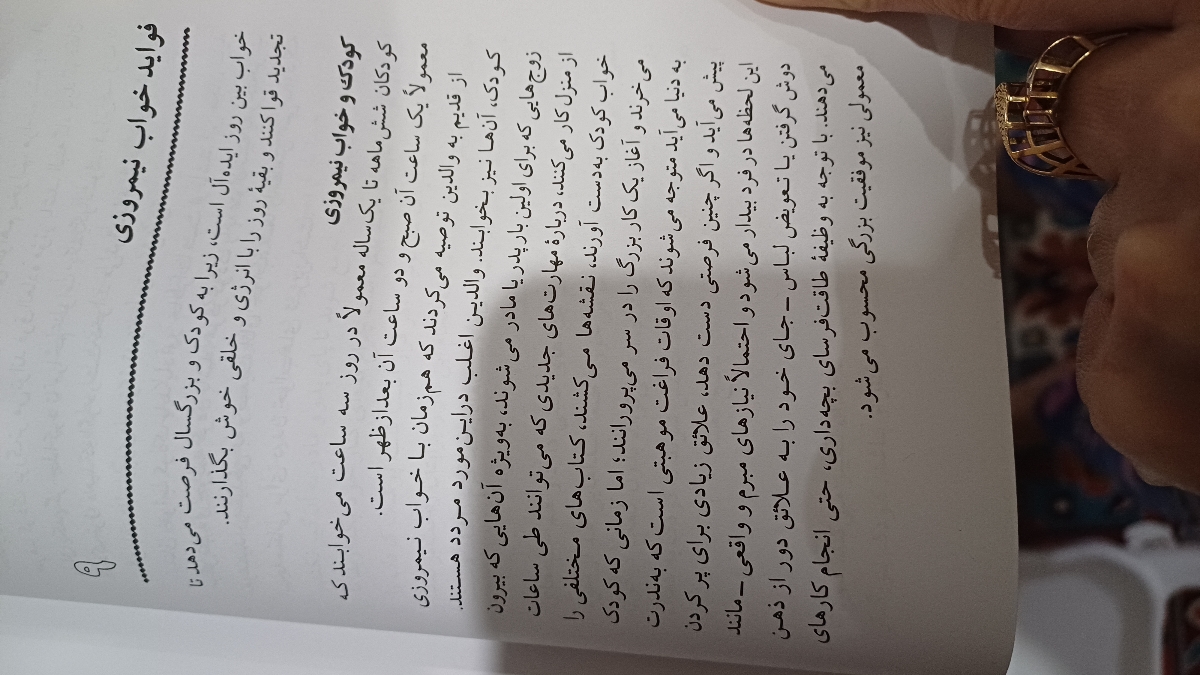 فواید خواب نیمروزی
خواب بین روز ایده‌آل است، زیرا به کودک و بزرگسال فرصت می‌دهد تا
تجدید قوا کنند و بقیهٔ روز را با انرژی و خلقی خوش بگذارنند.
کودک و خواب نیمروزی
کودکان شش‌ماهه تا یک‌ساله معمولاً در روز سه ساعت می‌خوابند که
معمولاً یک ساعت آن صبح و دو ساعت آن بعدازظهر است.
از قدیم به والدین توصیه می‌کردند که هم‌زمان با خواب نیمروزی
کودک، آن‌ها نیز بخوابند. والدین اغلب دراین‌مورد مردد هستند.
زوج‌هایی که برای اولین بار پدر یا مادر می‌شوند، به‌ویژه آن‌هایی که بیرون
از منزل کار می‌کنند، دربارهٔ مهارت‌های جدیدی که می‌توانند طی ساعات
خواب کودک به‌دست آورند، نقشه‌ها می‌کشند، کتاب‌های مختلفی را
می‌خرند و آغاز یک کار بزرگ را در سر می‌پرورانند؛ اما زمانی که کودک
به دنیا می‌آید متوجه می‌شوند که اوقات فراغت موهبتی است که به‌ندرت
پیش می‌آید و اگر چنین فرصتی دست دهد، علائق زیادی برای پر کردن
این لحظه‌ها در فرد بیدار می‌شود و احتمالاً نیازهای مبرم و واقعی - مانند
دوش گرفتن یا تعویض لباس - جای خود را به علائق دور از ذهن
می‌دهند. با توجه به وظیفهٔ طاقت‌فرسای بچه‌داری، حتی انجام کارهای
معمولی نیز موفقیت بزرگی محسوب می‌شود.